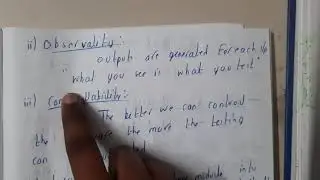 ii) Observality :
outputs are generated For each i/p
"what you see is what you test"
iii) Con llability :
The better we can control
the are the more the testing
can ted
the module into